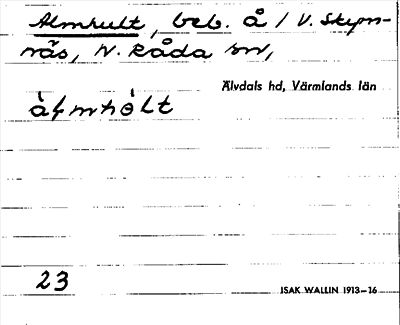 Almhult, beb. å / V. Skym-
näs, N. Råda sn,
Älvdals hd, Värmlands län
23
ISAK WALLIN 1913–16